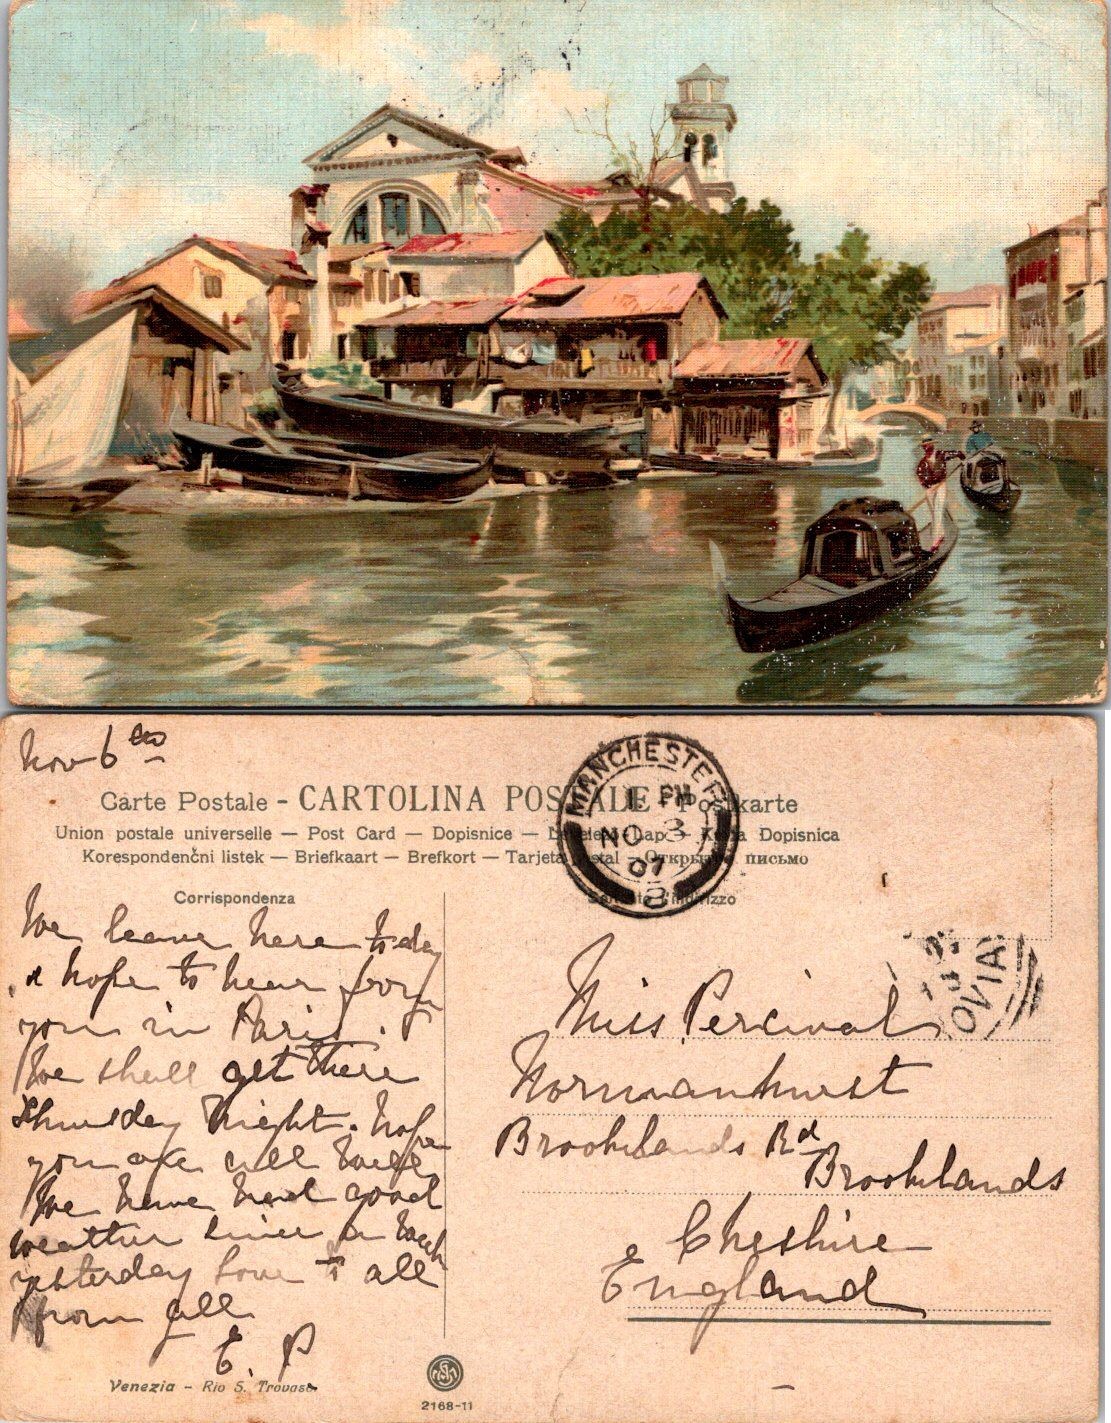 Nov 6th
Carte Postale - CARTOLINA POSTALE - Postkarte
Union postale universelle — Post Card — Dopisnice — Levelező-Lap — Karta Dopisnica
Korespondenčni listek — Briefkaart — Brefkort — Tarjeta postal — Открытое письмо
MANCHESTER
1 PM
NO 8
07
8
Corrispondenza
We leave here to-day
& hope to hear from
you in Paris.
We shall get there
Thursday night. hope
you are all well
We have had good
weather since a week
yesterday Love to all
from all
E. P
OVIA
Miss Percival
Normanhurst
Brooklands Rd
Brooklands
Cheshire
England
Venezia - Rio S. Trovaso
2168-11